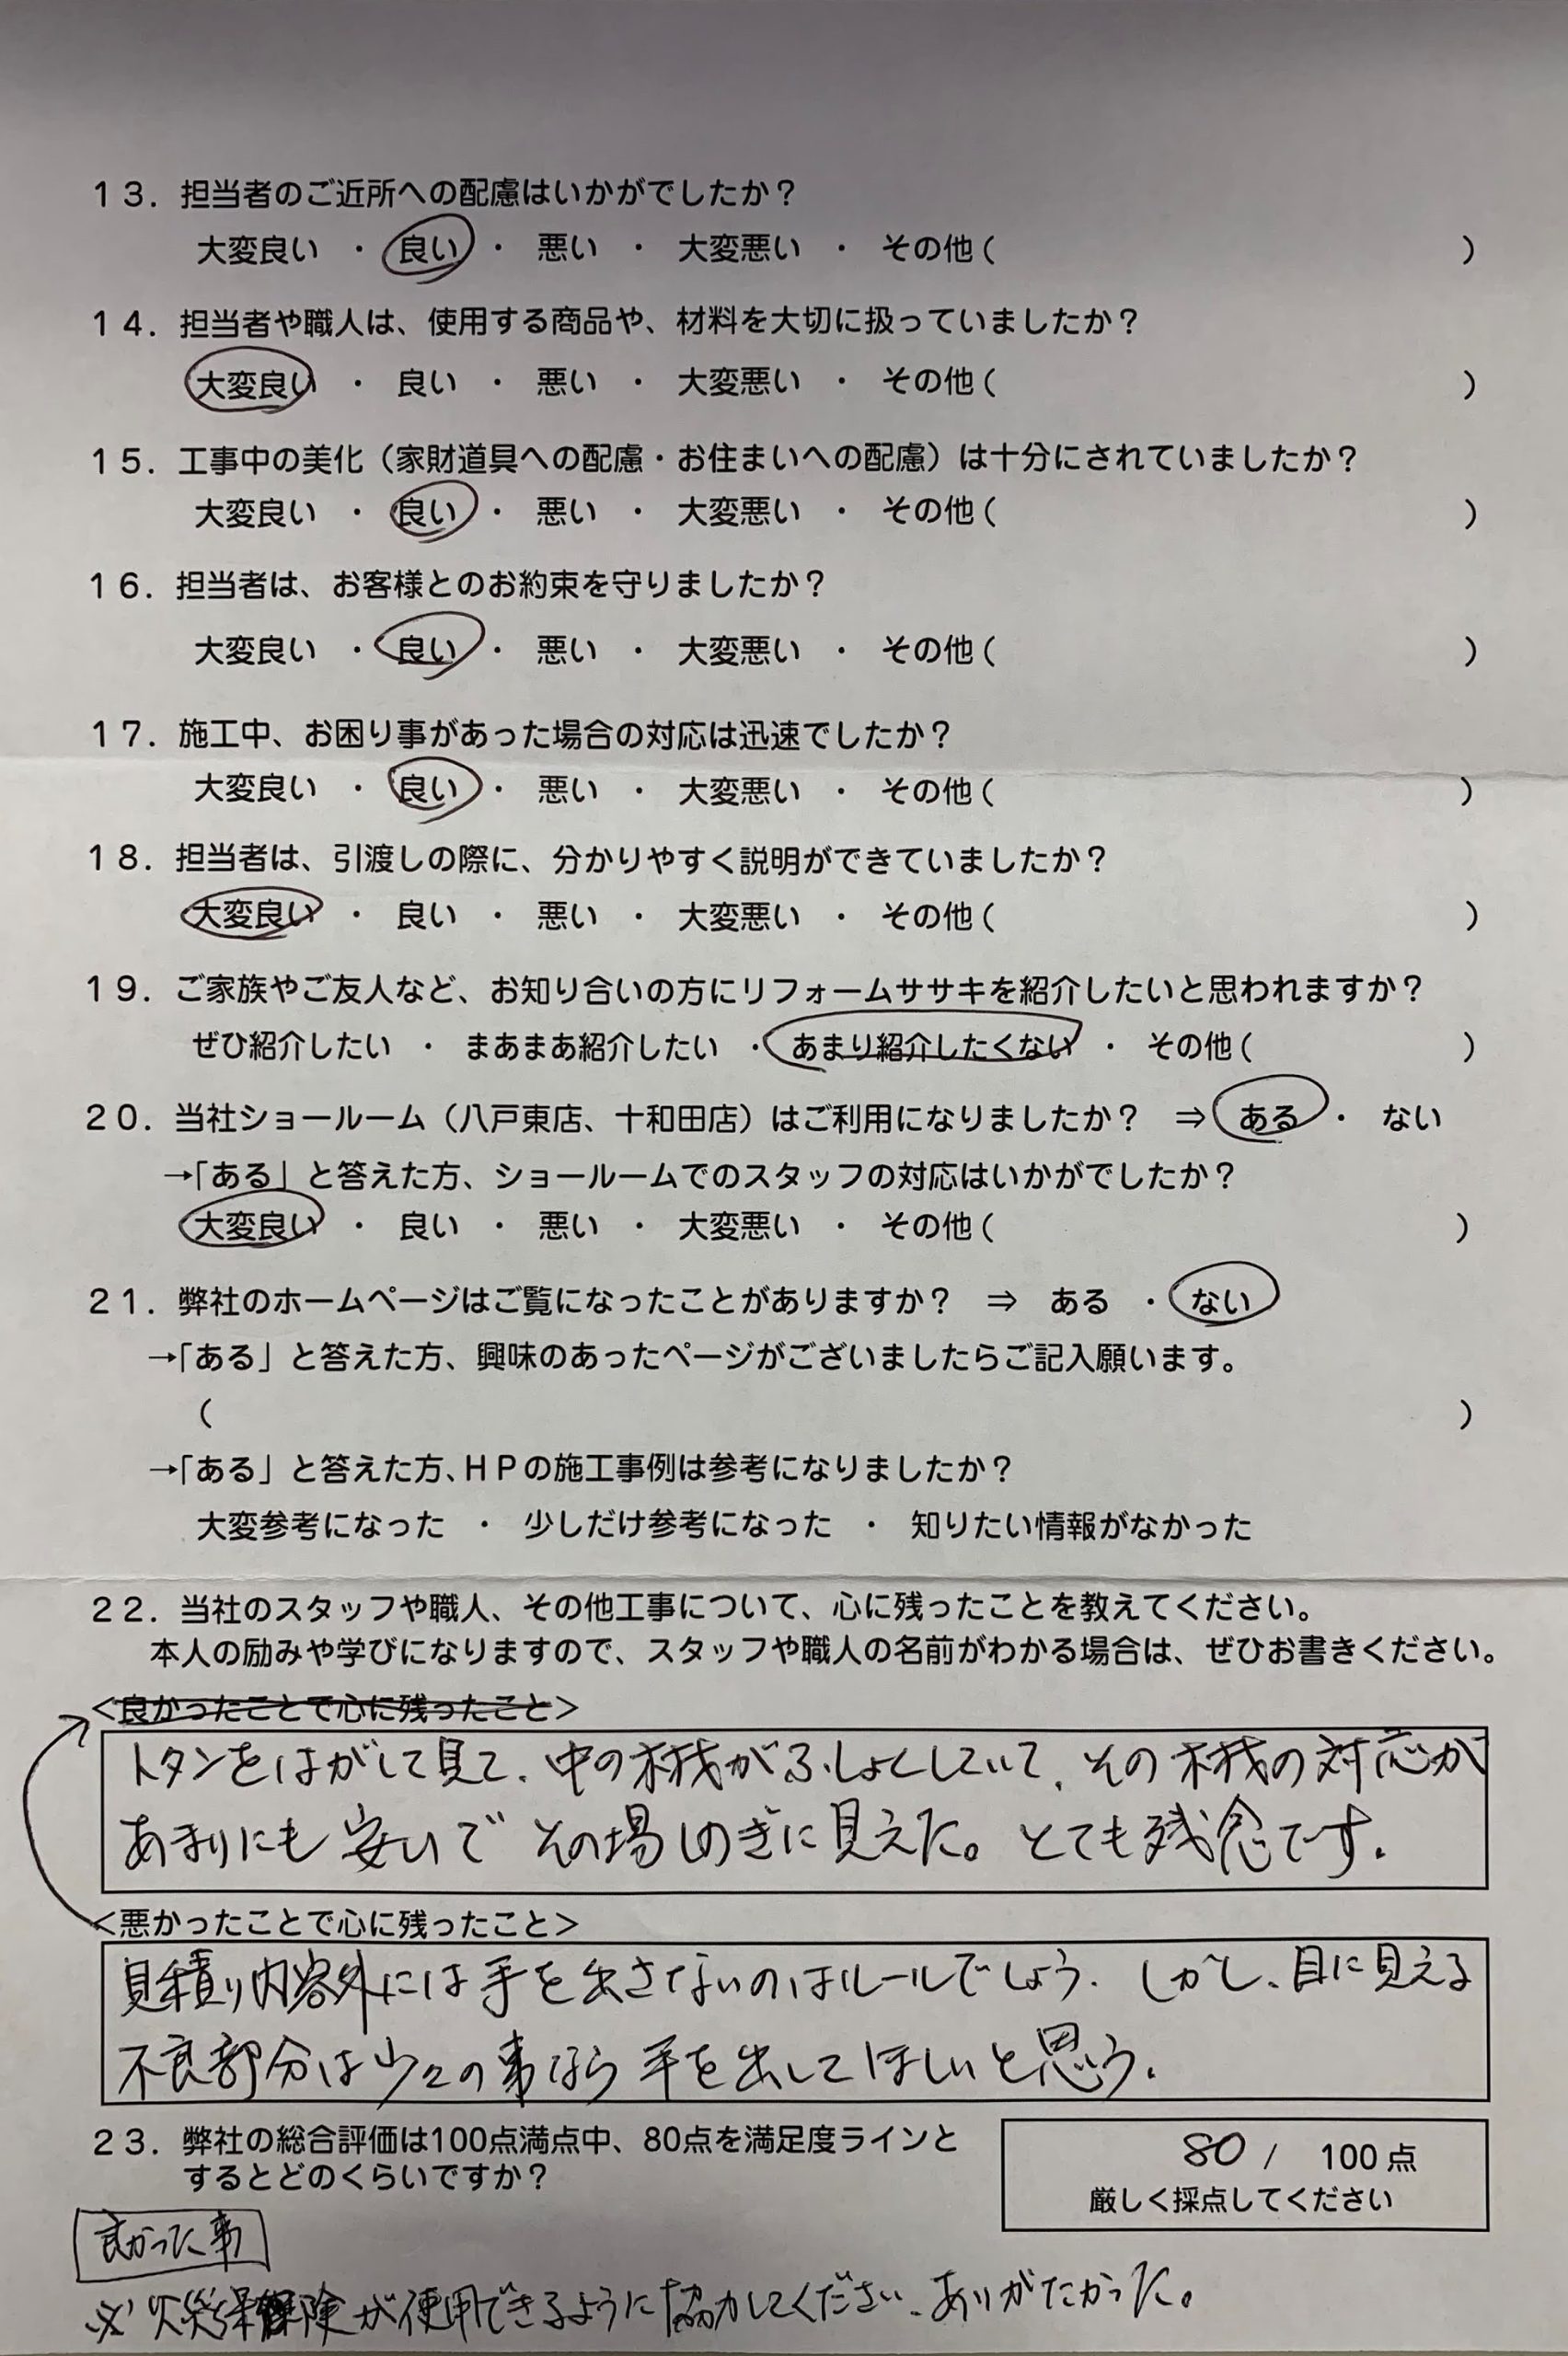 13．担当者のご近所への配慮はいかがでしたか？
大変良い ・ 良い ・ 悪い ・ 大変悪い ・ その他（ ）
14．担当者や職人は、使用する商品や、材料を大切に扱っていましたか？
大変良い ・ 良い ・ 悪い ・ 大変悪い ・ その他（ ）
15．工事中の美化（家財道具への配慮・お住まいへの配慮）は十分にされていましたか？
大変良い ・ 良い ・ 悪い ・ 大変悪い ・ その他（ ）
16．担当者は、お客様とのお約束を守りましたか？
大変良い ・ 良い ・ 悪い ・ 大変悪い ・ その他（ ）
17．施工中、お困り事があった場合の対応は迅速でしたか？
大変良い ・ 良い ・ 悪い ・ 大変悪い ・ その他（ ）
18．担当者は、引渡しの際に、分かりやすく説明ができていましたか？
大変良い ・ 良い ・ 悪い ・ 大変悪い ・ その他（ ）
19．ご家族やご友人など、お知り合いの方にリフォームササキを紹介したいと思われますか？
ぜひ紹介したい ・ まあまあ紹介したい ・ あまり紹介したくない ・ その他（ ）
20．当社ショールーム（八戸東店、十和田店）はご利用になりましたか？ ⇒ ある ・ ない
→「ある」と答えた方、ショールームでのスタッフの対応はいかがでしたか？
大変良い ・ 良い ・ 悪い ・ 大変悪い ・ その他（ ）
21．弊社のホームページはご覧になったことがありますか？ ⇒ ある ・ ない
→「ある」と答えた方、興味のあったページがございましたらご記入願います。
（ ）
→「ある」と答えた方、ＨＰの施工事例は参考になりましたか？
大変参考になった ・ 少しだけ参考になった ・ 知りたい情報がなかった
22．当社のスタッフや職人、その他工事について、心に残ったことを教えてください。
本人の励みや学びになりますので、スタッフや職人の名前がわかる場合は、ぜひお書きください。
＜良かったことで心に残ったこと＞
トタンをはがして見て、中の木材がふしょくしていて、その木材の対応が
あまりにも安いで その場しのぎに見えた。とても残念です.
＜悪かったことで心に残ったこと＞
見積り内容外には手を出さないのはルールでしょう. しかし、目に見える
不良部分は少々の事なら手を出してほしいと思う.
23．弊社の総合評価は100点満点中、80点を満足度ラインと
するとどのくらいですか？
80 / 100 点
厳しく採点してください
良かった事
※火災保険が使用できるように協力してください、ありがたかった。